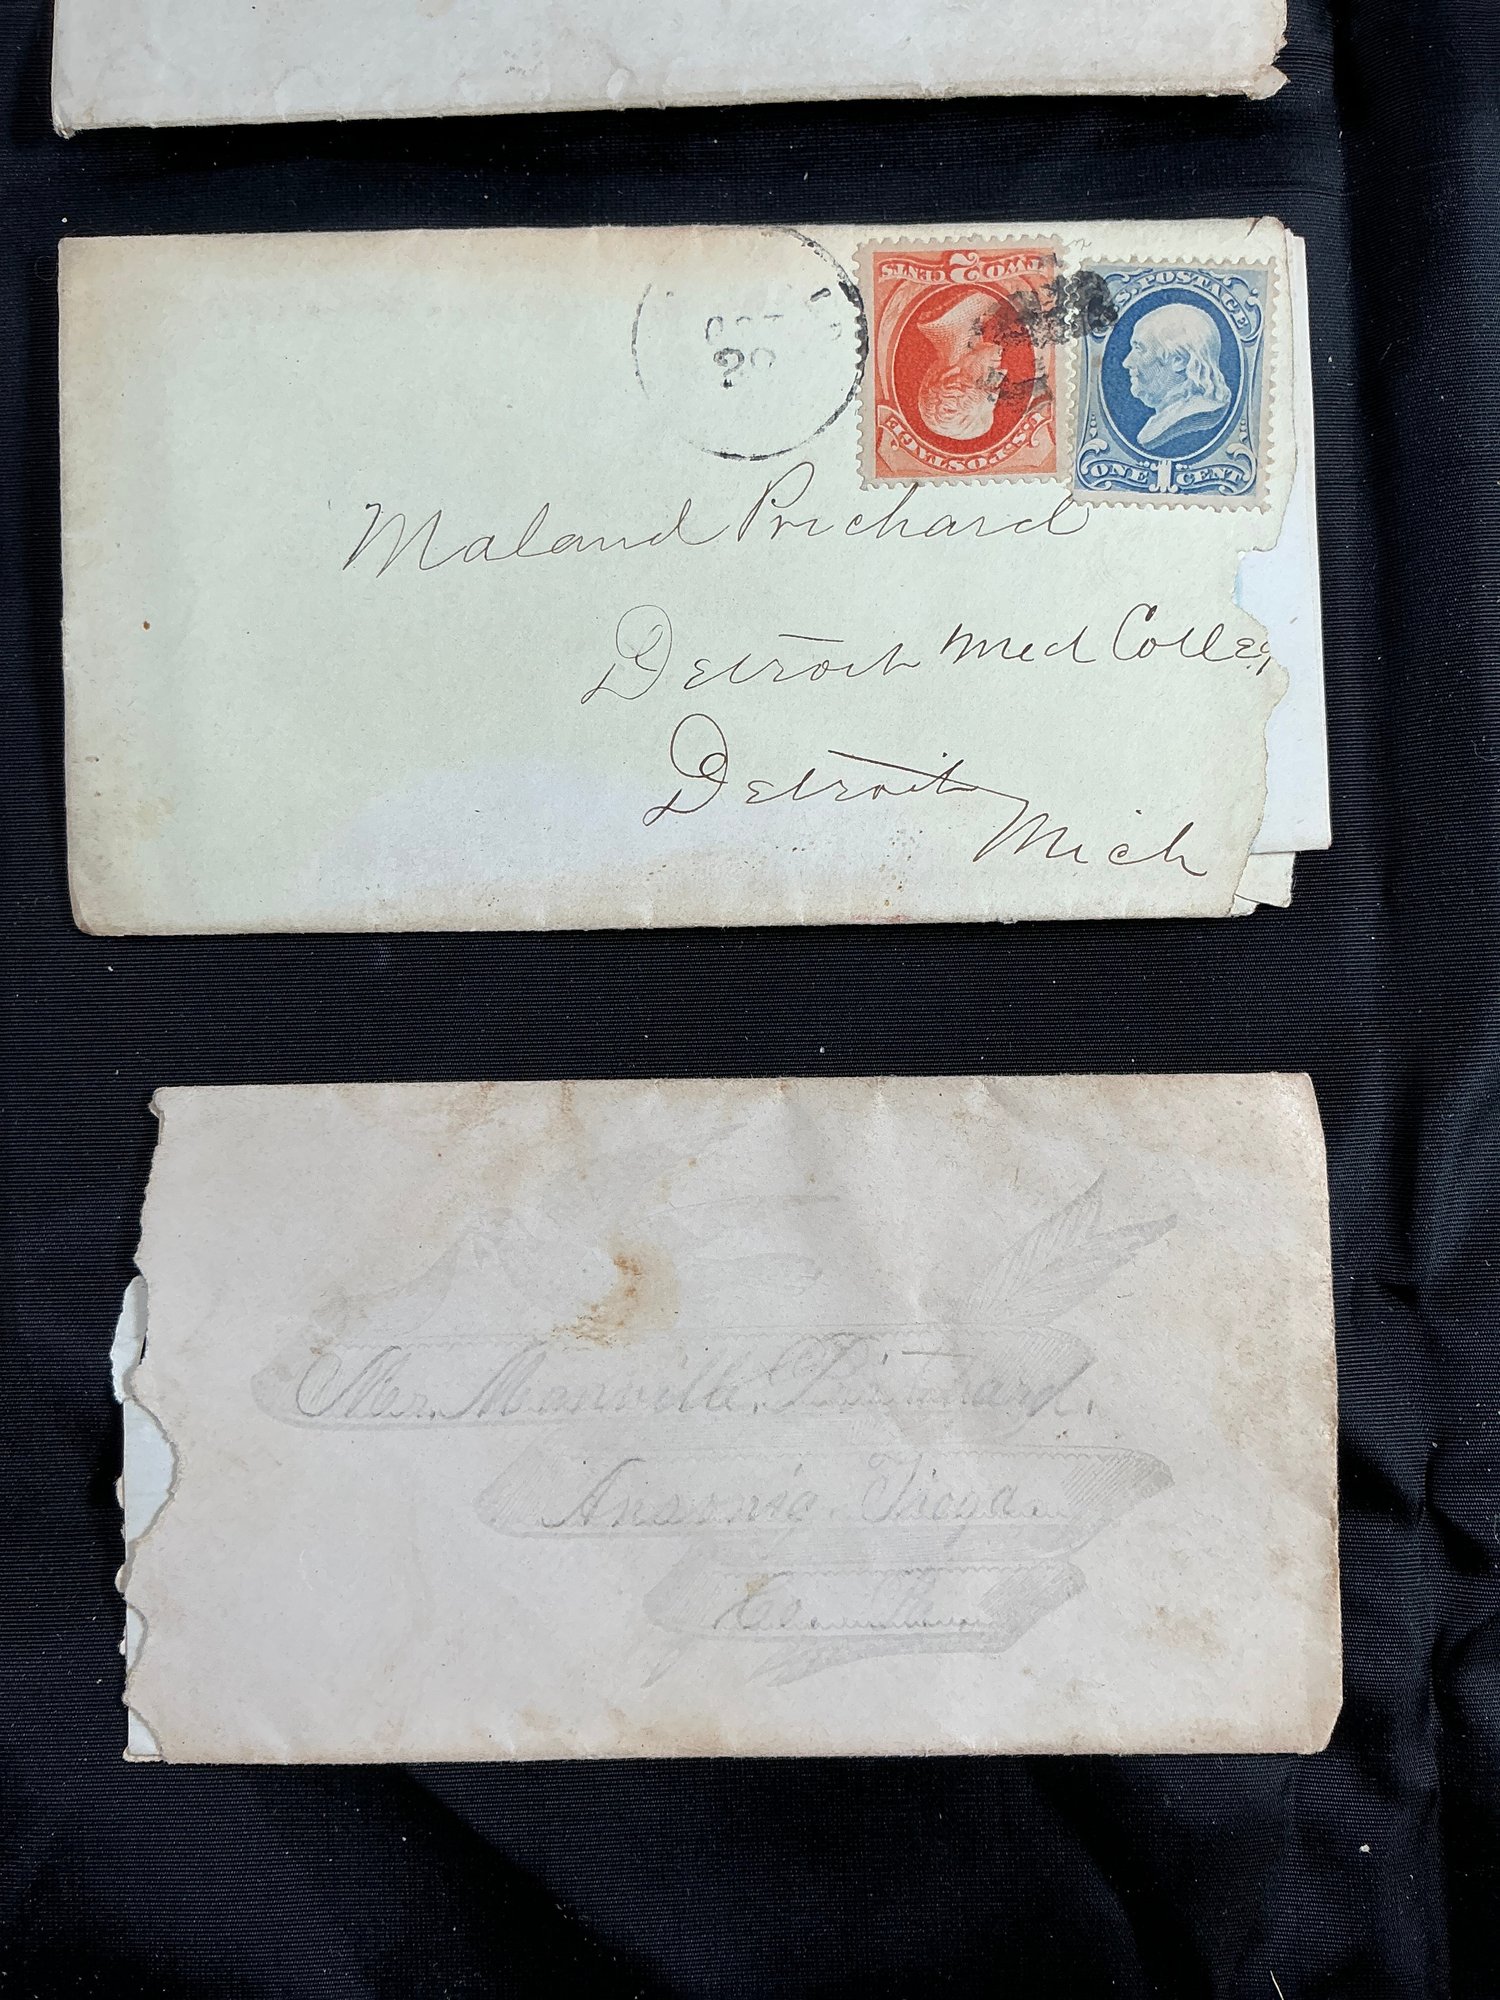 OCT
20
TWO 2 CENTS
U.S. POSTAGE
U.S. POSTAGE
ONE 1 CENT
Maland Prichard
Detroit Med Colleg
Detroit
Mich
Mr. Manville Pritchard.
Tioga.
Co.